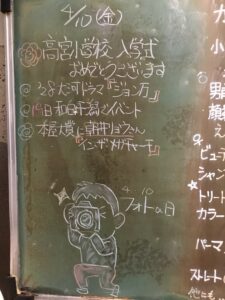 4/10 (金)
高宮小学校 入学式
おめでとうございます
◎28大河ドラマ『ジョン万』
◎19日
イベント
◎本屋大賞に朝井リョウさん
『イン・ザ・メガチャーチ』
4 10
フォトの日
男
顔
え
ビューテ
シャン
トリート
カラー
パーマ
ストレート